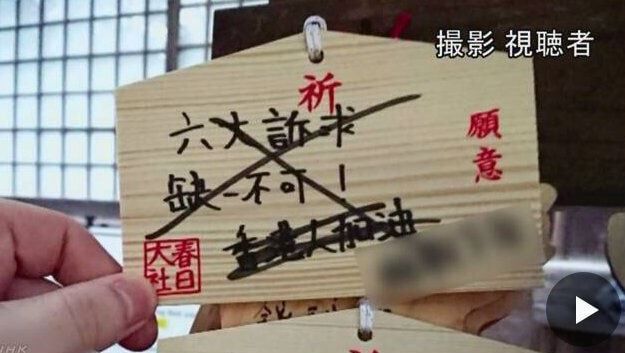 撮影 視聴者
祈
願意
六大訴求
缺一不可！
香港人加油
春日
大社
NHK